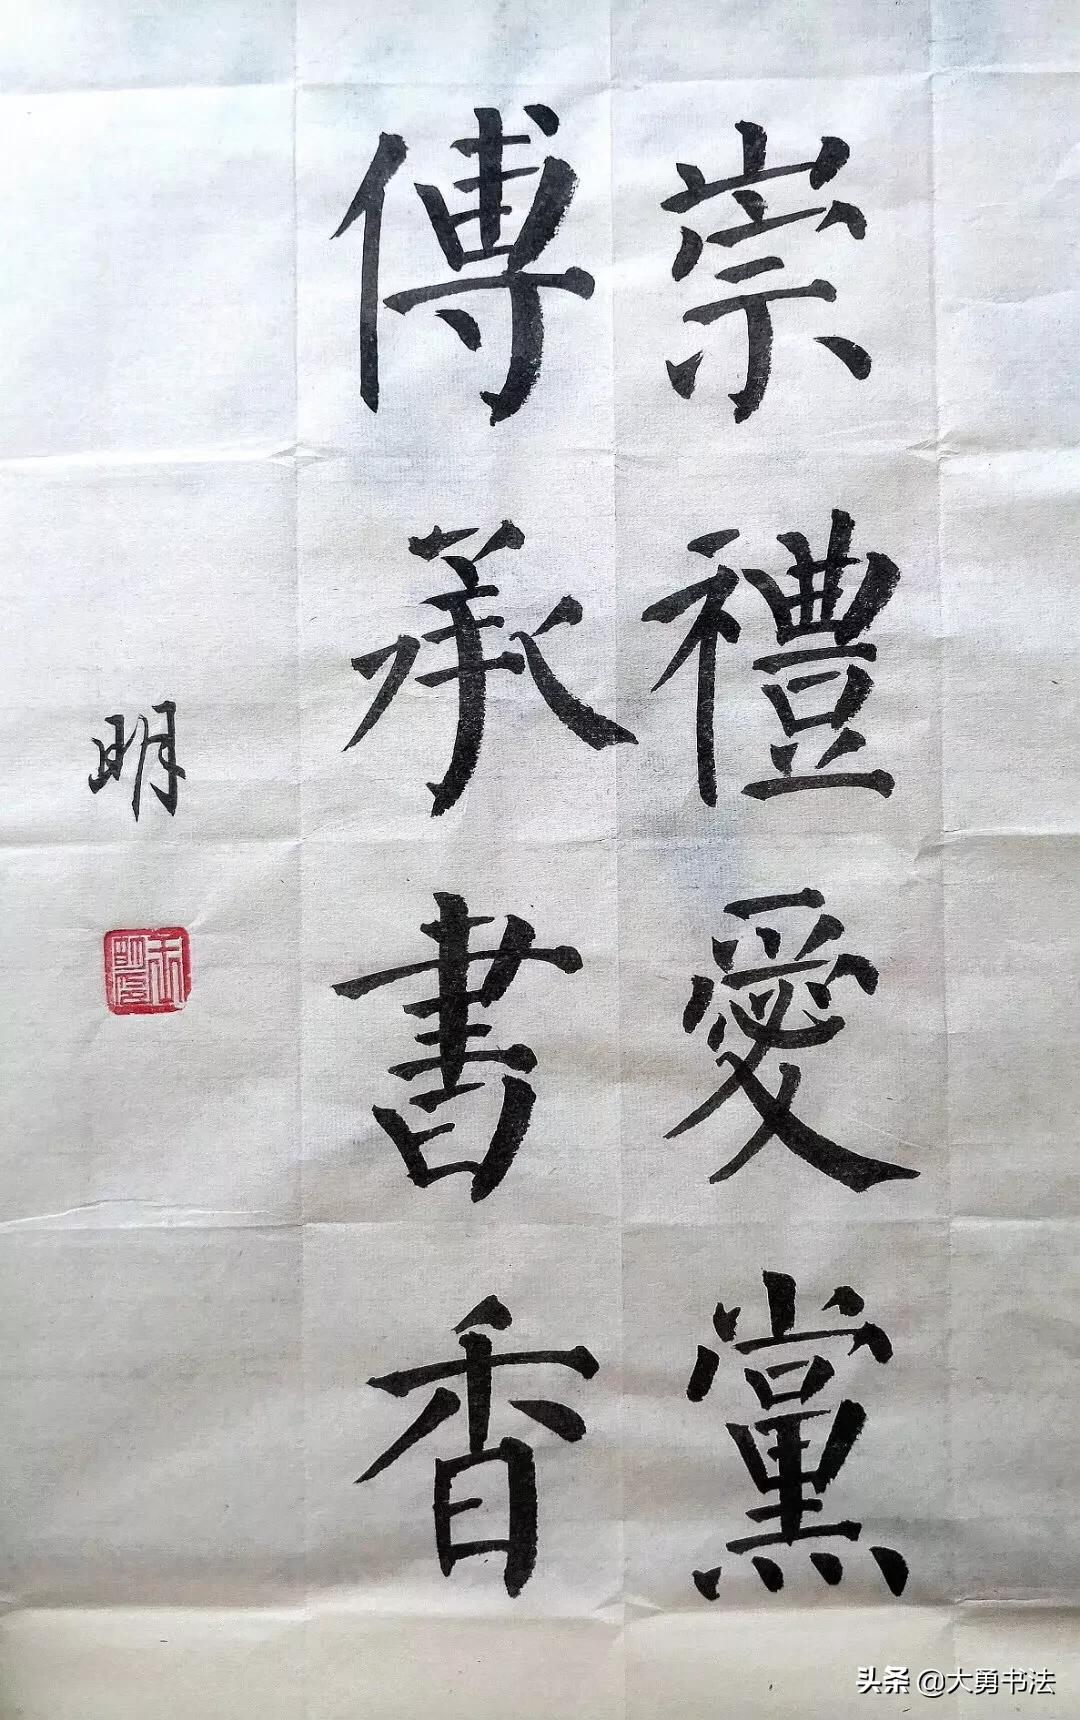 崇禮愛黨
傳承書香
明
头条 @大勇书法